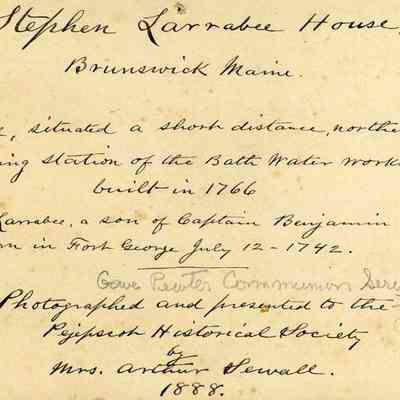 Stephen Larrabee House,
Brunswick Maine.
, situated a short distance, northe
ing station of the Bath Water Works
built in 1766
Larrabee, a son of Captain Benjamin
rn in Fort George July 12-1742.
Gave Pewter Communion Serv
Photographed and presented to the
Pejepscot Historical Society
by
Mrs. Arthur Sewall.
1888.